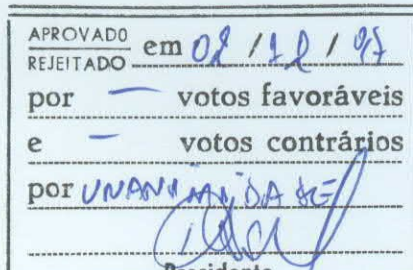 APROVADO
REJEITADO em 02 / 12 / 97
por — votos favoráveis
e — votos contrários
por UNANIMIDADE
Presidente